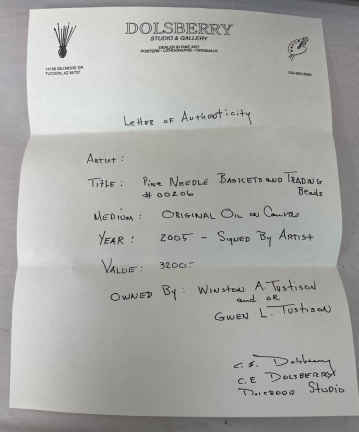 DOLSBERRY
STUDIO & GALLERY
DEALER IN FINE ART
POSTERS - LITHOGRAPHS - ORIGINALS
Letter of Authenticity
Artist :
Title : Pine Needle Baskets and Trading
# 00206 Beads
Medium : Original Oil on Canvas
Year : 2005 - Signed By Artist
Value : 3200.-
Owned By : Winston A. Tustison
and or
Gwen L. Tustison
C.E. Dolsberry
C.E Dolsberry
Studio